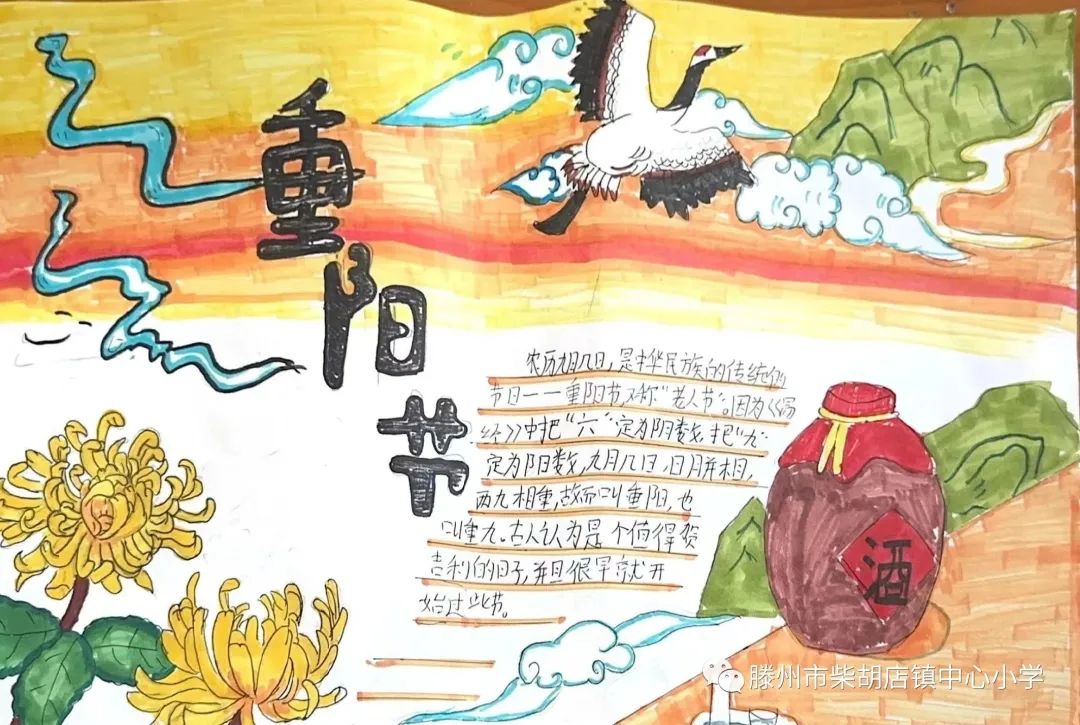 重阳节
农历九月九日，是中华民族的传统的
节日——重阳节，又称“老人节”。因为《易
经》中把“六”定为阴数，把“九”
定为阳数，九月九日，日月并相，
两九相重，故而叫重阳，也
叫重九。古人认为是个值得贺
吉利的日子，并且很早就开
始过此节。
酒
滕州市柴胡店镇中心小学